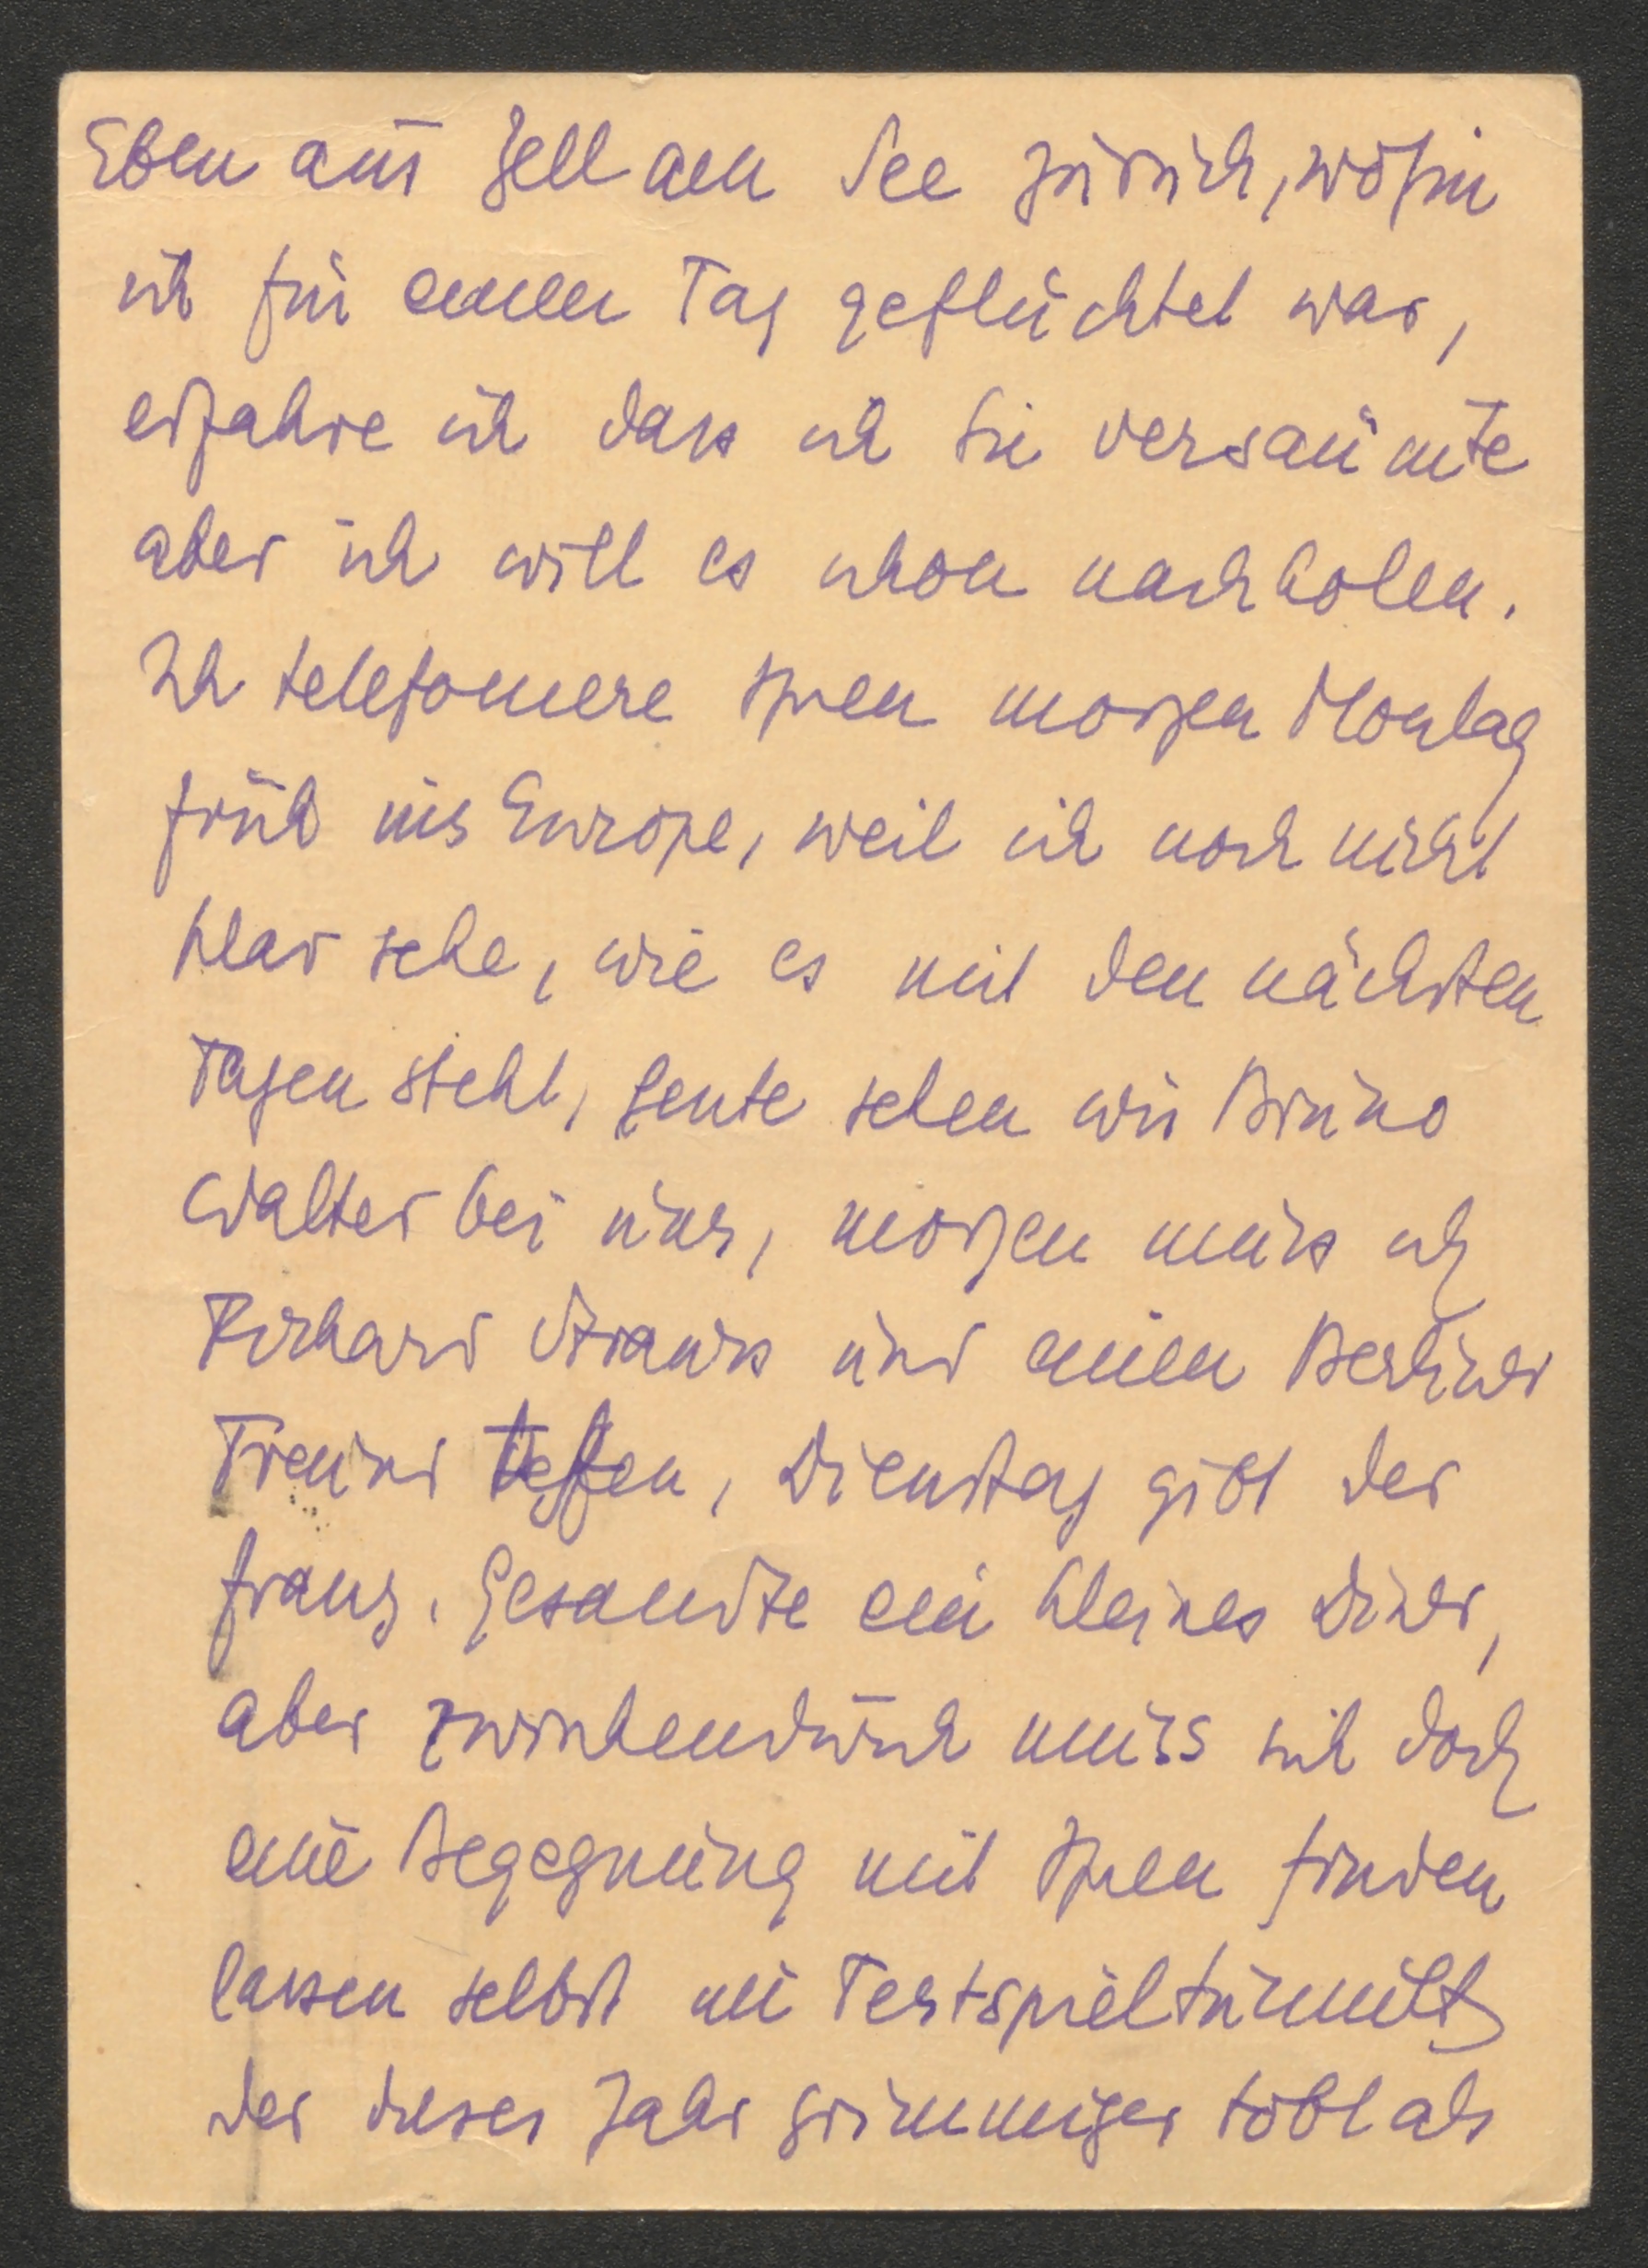 Eben aus Zell am See zurück, wohin
ich für einen Tag geflüchtet war,
erfahre ich dass ich Sie versäumte
aber ich will es schon nachholen.
Ich telefoniere Ihnen morgen Montag
früh ins Europe, weil ich noch nicht
klar sehe, wie es mit den nächsten
Tagen steht, heute sehen wir Bruno
Walter bei uns, morgen muss ich
Richard Strauss und einen Berliner
Freund treffen, Dienstag gibt der
franz. Gesandte ein kleines Diner,
aber zwischendurch muss sich doch
eine Begegnung mit Ihnen finden
lassen selbst im Festspieltumult,
der dieses Jahr grimmiger tobt als